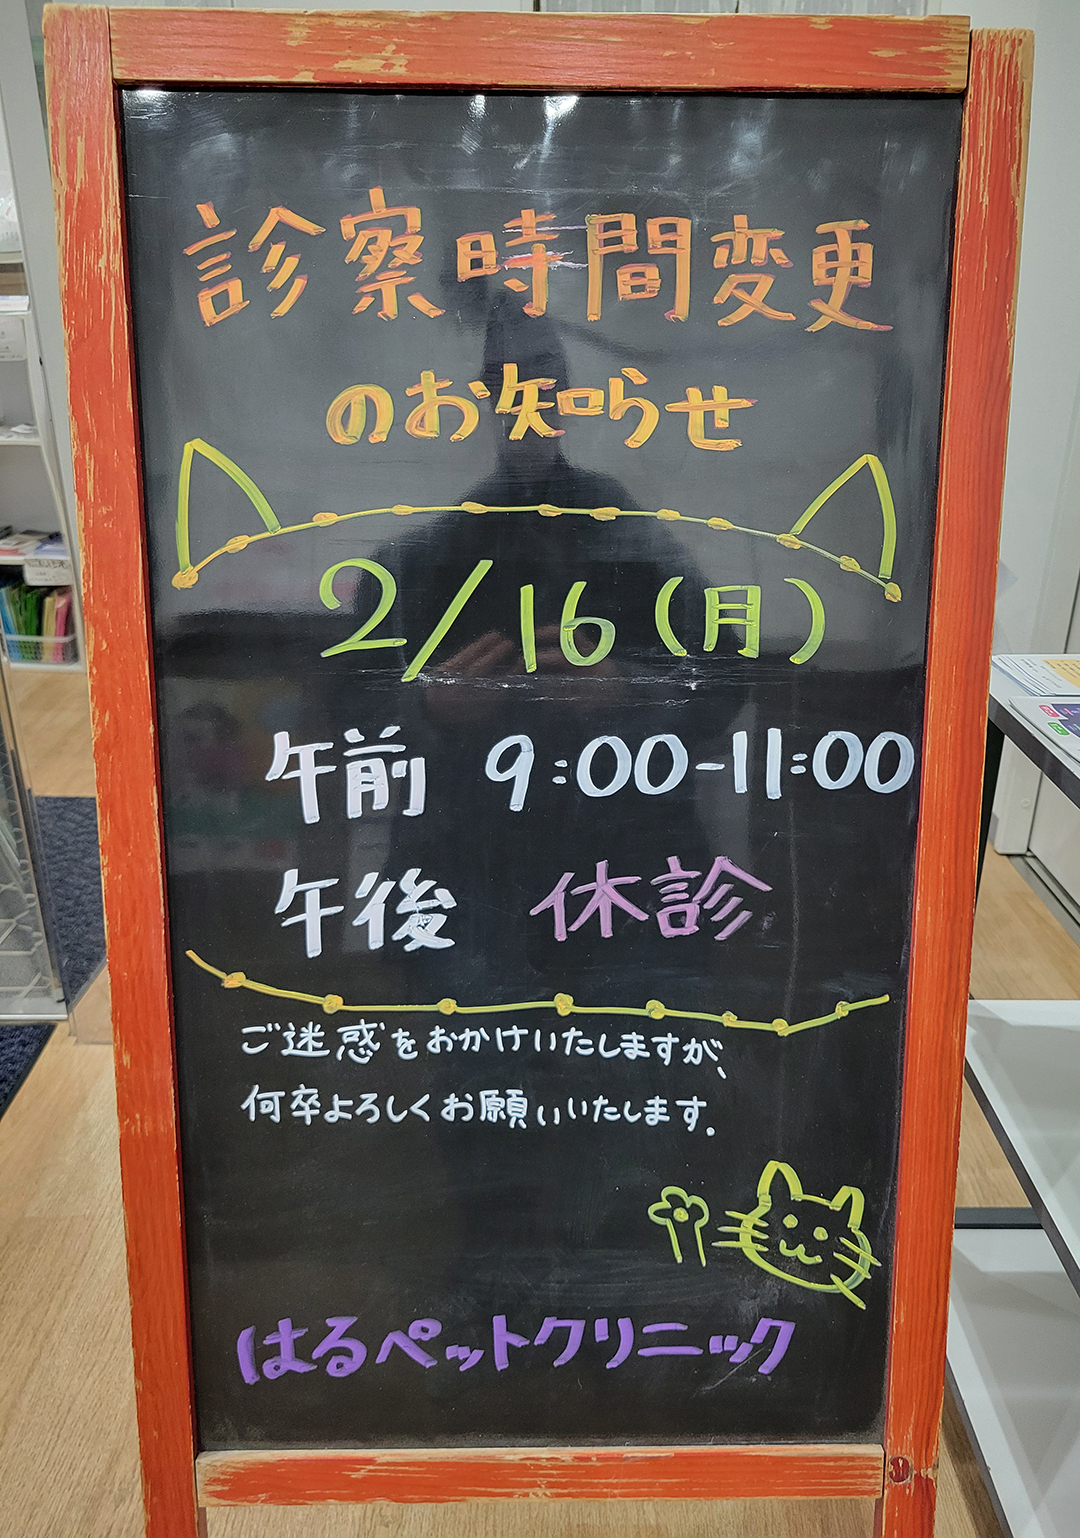 診察時間変更
のお知らせ
2/16(月)
午前 9:00-11:00
午後 休診
ご迷惑をおかけいたしますが、
何卒よろしくお願いいたします.
はるペットクリニック